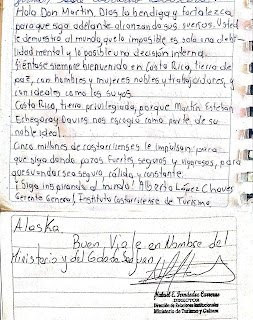 Hola Don Martín, Dios la bendiga y fortalezca
para que siga adelante alcanzando sus sueños. Usted
le demuestra al mundo que lo imposible es solo una debi-
lidad mental y lo posible una decisión interna.
Siéntase siempre bienvenido en Costa Rica, tierra de
paz, con hombres y mujeres nobles y trabajadores, y
con ideales como los suyos.
Costa Rica, tierra privilegiada, porque Martín Esteban
Echegaray Davies nos escogió como parte de su
noble ideal.
Cinco millones de costarricenses le impulsan para
que siga dando pasos fuertes, seguros y vigorosos, para
que su andar sea seguro, cálido y constante.
¡Siga inspirando al mundo! Alberto López Chaves
Gerente General, Instituto Costarricense de Turismo.
Alaska
Buen Viaje en Nombre del
Ministerio y del Gob de San Juan
Rafael E. Fernández
DIRECTOR
Dirección de Relaciones Institucionales
Ministerio de Turismo y Cultura